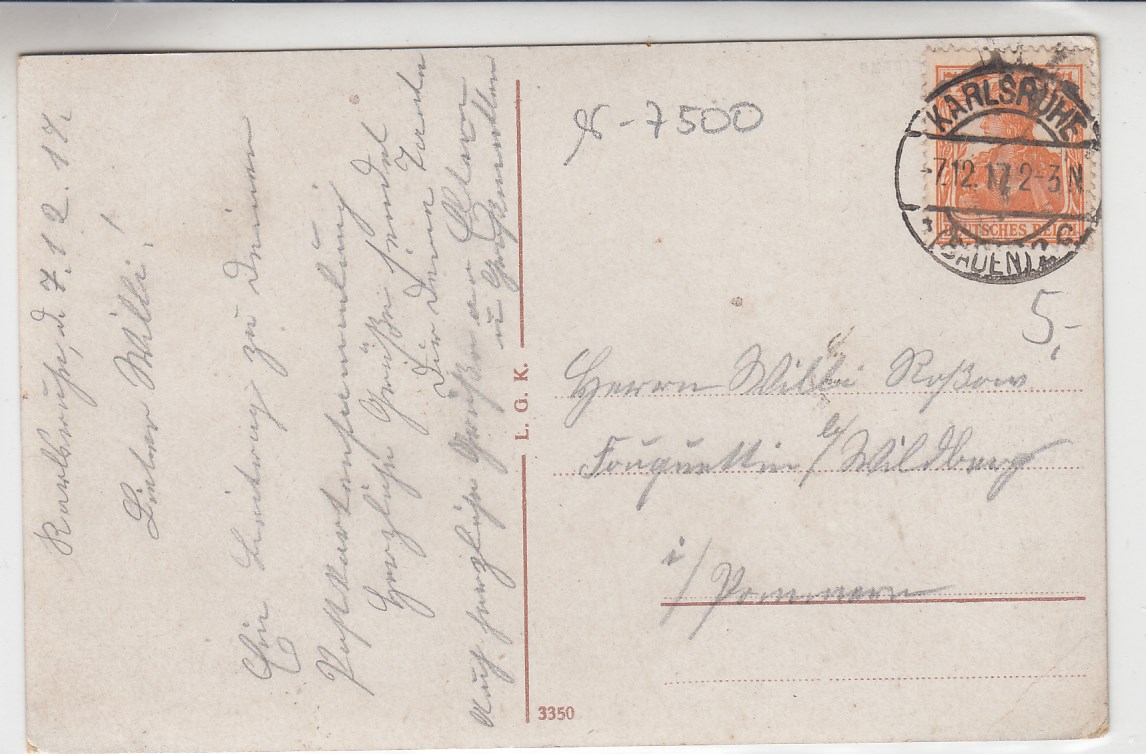 Karlsruhe, d. 7.12.17.
Lieber Willi!
Ein Beitrag zu Deiner
Postkartensammlung.
Herzliche Grüße sendet
Dir Deine Tante
Auch herzliche Grüße an
u Großmutter
L. G. K.
3350
8-7500
KARLSRUHE
-7.12.17 2-3 N
(BADEN) 2
DEUTSCHES REICH
5,-
Herrn Willi Roßow
b/
i/ Pommern